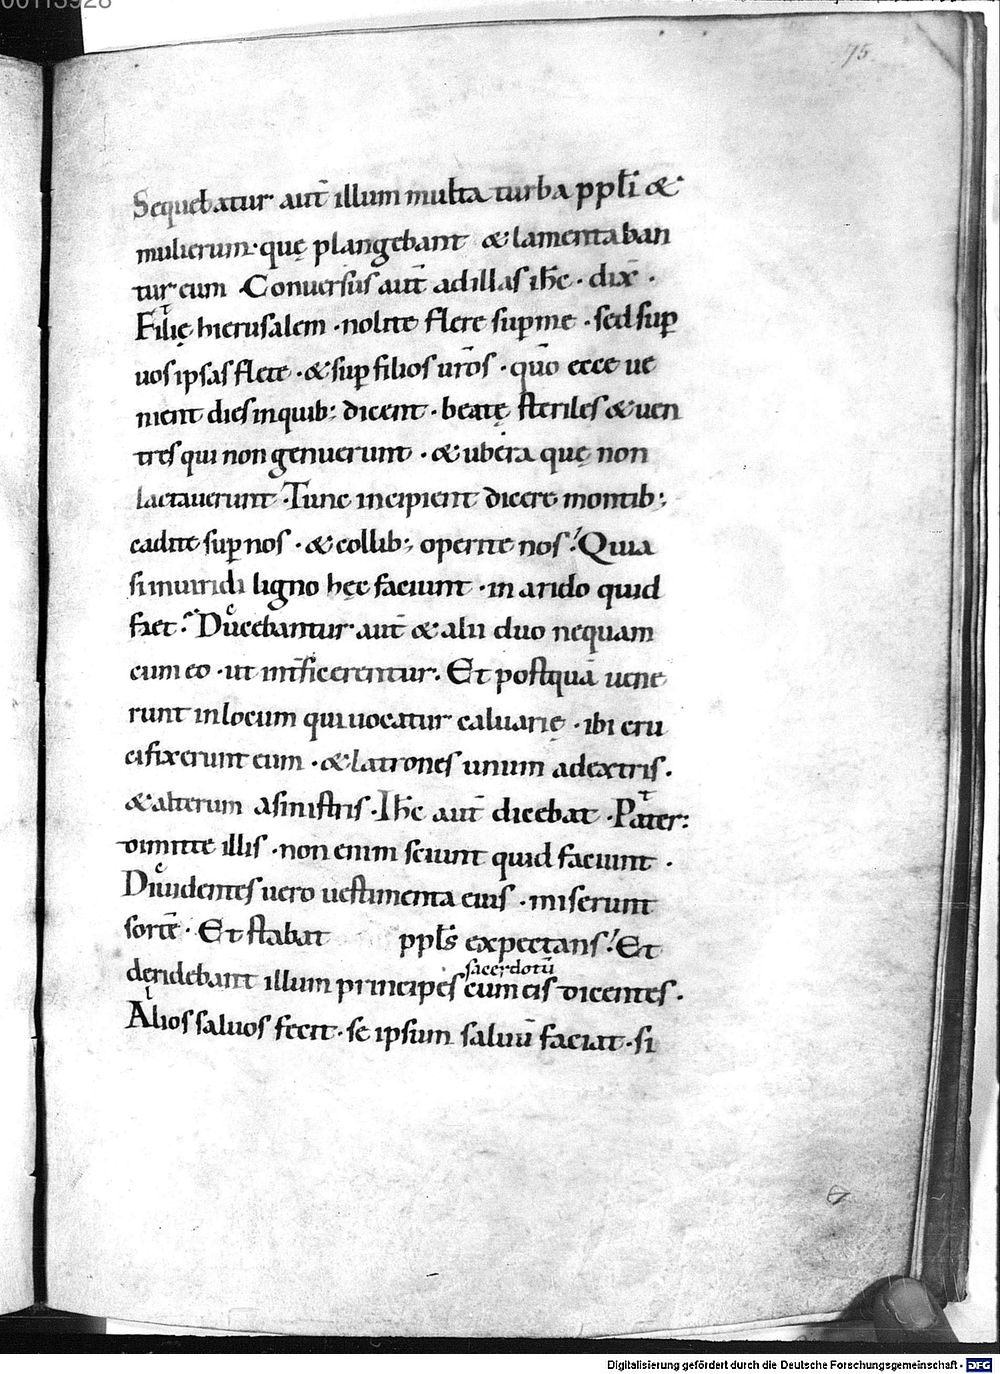 00113928
75
Sequebatur aut̄ illum multa turba ppl̄i &
mulierum· quę plangebant & lamentaban
tur eum · Conuersus aut̄ ad illas ih̄c · dix̄ ·
t
Filię hierusalem · nolite flere sup me · sed sup
uos ipsas flete · & sup filios ur̄os · qūo ecce ue
nient dies in quib; dicent · beatę steriles & uen
tres qui non genuerunt · & ubera quę non
lactauerunt · Tunc incipient dicere montib;
cadite sup nos · & collib; operite nos! Quia
si in uiridi ligno hęc faciunt · in arido quid
c
fiet? Ducebantur aut̄ & alii duo nequam
cum eo · ut int̄ficerentur. Et postquā uene
runt in locum qui uocatur caluarię · ibi cru
cifixerunt eum · & latrones unum a dextris ·
t
& alterum a sinistris · Ih̄c aut̄ dicebat · Pater:
dimitte illis · non enim sciunt quid faciunt ·
c
Diuidentes uero uestimenta eius · miserunt
sortē · Et stabat ppl̄s expectans! Et
sacerdotū
deridebant illum principes cum eis dicentes ·
l
Alios saluos fecit · se ipsum saluū faciat · si
Digitalisierung gefördert durch die Deutsche Forschungsgemeinschaft - DFG